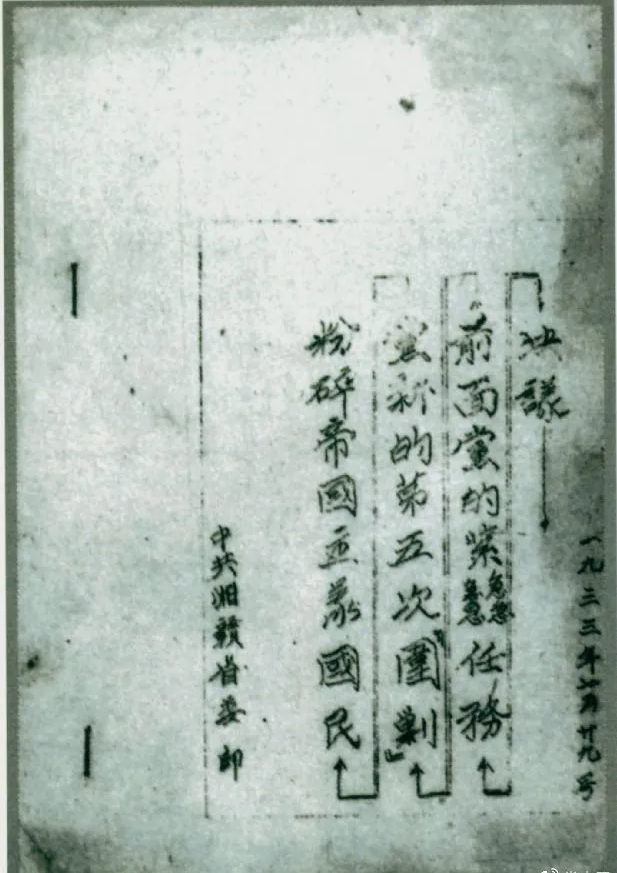 中共湘贛省委印
粉碎帝國主義國民
黨新的第五次“圍剿”
前面黨的緊急任務
決議
一九三三年七月廿九号